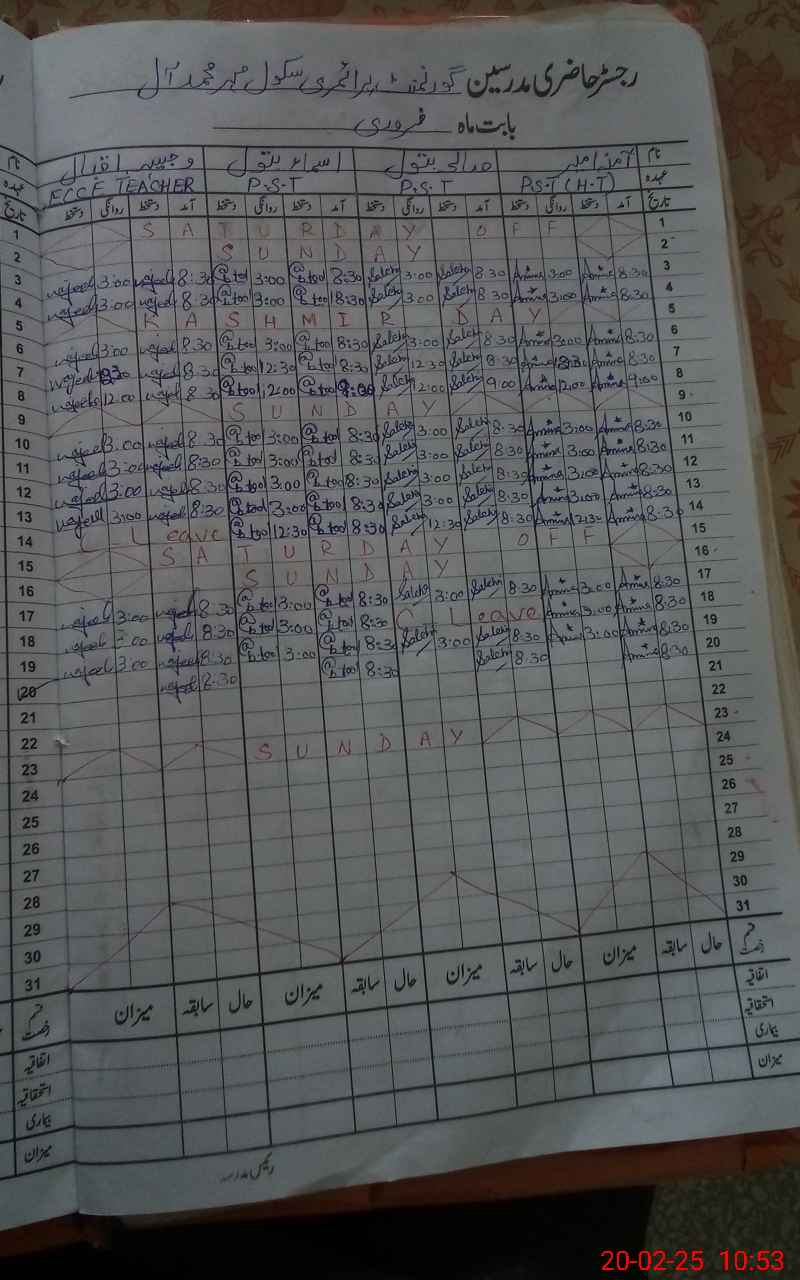 رجسٹر حاضری مدرسین گورنمنٹ پرائمری سکول مہر محمد آل
بابت ماہ فروری
نام آمنہ امیر صالح بتول اسماء بتول وجیہہ اقبال نام
عہدہ P.S.T (H-T) P.S.T P.S.T ECCE TEACHER عہدہ
تاریخ آمد دستخط روانگی دستخط آمد دستخط روانگی دستخط آمد دستخط روانگی دستخط آمد دستخط روانگی دستخط تاریخ
1 SATURDAY OFF 1
2 SUNDAY 2
3 wajeeh 3:00 wajeeh 8:30 @b.tool 3:00 @b.tool 8:30 Saleha 3:00 Saleha 8:30 Amina 3:00 Amina 8:30 3
4 wajeeh 3:00 wajeeh 8:30 @b.tool 3:00 @b.tool 8:30 Saleha 3:00 Saleha 8:30 Amina 3:00 Amina 8:30 4
5 KASHMIR DAY 5
6 wajeeh 3:00 wajeeh 8:30 @b.tool 3:00 @b.tool 8:30 Saleha 3:00 Saleha 8:30 Amina 3:00 Amina 8:30 6
7 wajeeh wajeeh 8:30 @b.tool 12:30 @b.tool 8:30 Saleha 12:30 Saleha 8:30 Amina Amina 8:30 7
8 wajeeh 12:00 wajeeh 8:30 @b.tool 12:00 @b.tool Saleha 12:00 Saleha 9:00 Amina 12:00 Amina 9:00 8
9 SUNDAY 9
10 wajeeh 3:00 wajeeh 8:30 @b.tool 3:00 @b.tool 8:30 Saleha 3:00 Saleha 8:30 Amina 3:00 Amina 8:30 10
11 wajeeh 3:00 wajeeh 8:30 @b.tool 3:00 @b.tool 8:30 Saleha 3:00 Saleha 8:30 Amina 3:00 Amina 8:30 11
12 wajeeh 3:00 wajeeh 8:30 @b.tool 3:00 @b.tool 8:30 Saleha 3:00 Saleha 8:30 Amina 3:00 Amina 8:30 12
13 wajeeh 3:00 wajeeh 8:30 @b.tool 3:00 @b.tool 8:30 Saleha 3:00 Saleha 8:30 Amina 3:00 Amina 8:30 13
14 C Leave @b.tool 12:30 @b.tool 8:30 Saleha 12:30 Saleha 8:30 Amina 12:30 Amina 8:30 14
15 SATURDAY OFF 15
16 SUNDAY 16
17 wajeeh 3:00 wajeeh 8:30 @b.tool 3:00 @b.tool 8:30 Saleha 3:00 Saleha 8:30 Amina 3:00 Amina 8:30 17
18 wajeeh 3:00 wajeeh 8:30 @b.tool 3:00 @b.tool 8:30 C Leave Amina 3:00 Amina 8:30 18
19 wajeeh 3:00 wajeeh 8:30 @b.tool 3:00 @b.tool 8:30 Saleha 3:00 Saleha 8:30 Amina 3:00 Amina 8:30 19
20 wajeeh 8:30 @b.tool 8:30 Saleha 8:30 Amina 8:30 20
21 21
22 22
23 SUNDAY 23
24 24
25 25
26 26
27 27
28 28
29 29
30 30
31 31
قسم رخصت حال سابقہ میزان حال سابقہ میزان حال سابقہ میزان حال سابقہ میزان قسم رخصت
اتفاقیہ اتفاقیہ
استحقاقیہ استحقاقیہ
بیماری بیماری
میزان میزان
رئیس مدرسہ
20-02-25 10:53